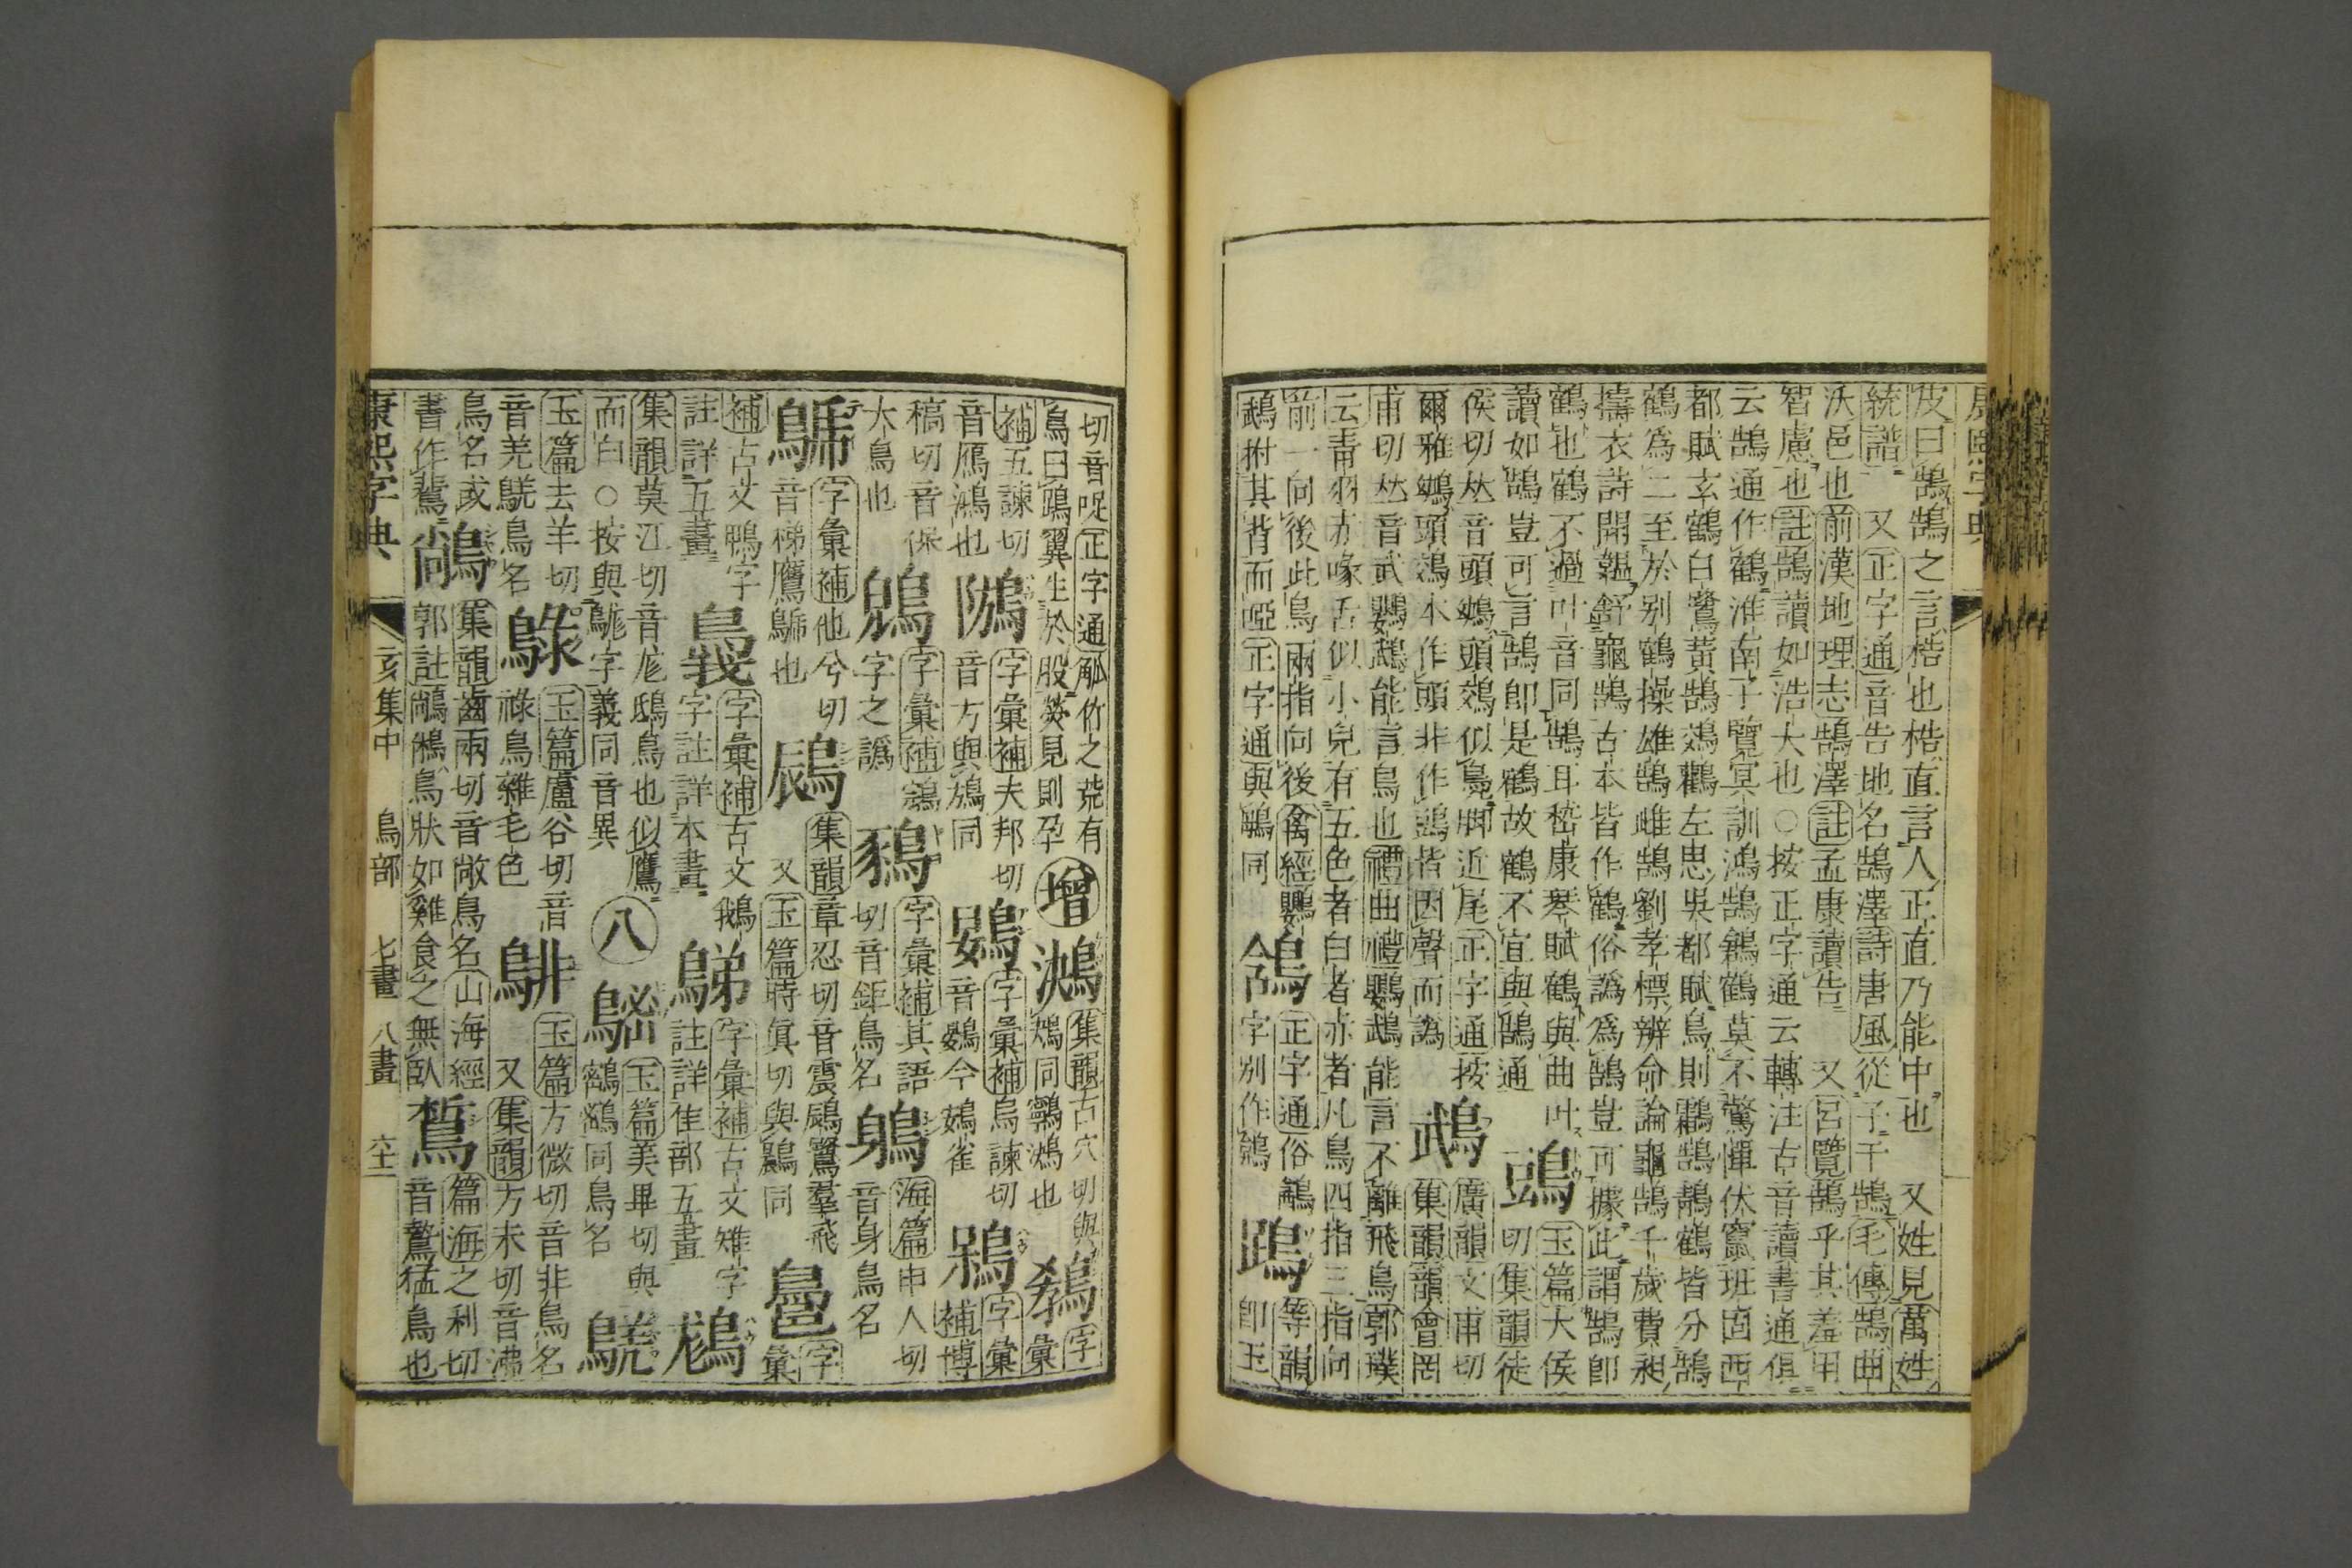 皮曰鵠鵠之言梏也梏直言人正直乃能中也　又姓見萬姓
統譜　又正字通音告地名鵠澤詩唐風從子于鵠毛傳鵠曲
沃邑也前漢地理志鵠澤註孟康讀告　又呂覽鵠乎其羞用
智慮也註鵠讀如浩大也○按正字通云轉注古音讀書通俱
云鵠通作鶴淮南子覽冥訓鴻鵠鶬鶴莫不驚憚伏竄班固西
都賦玄鶴白鷺黃鵠鵁鸛左思吳都賦鳥則鸘鵠鶄鶴皆分鵠
鶴爲二至於别鶴操雄鵠雌鵠劉孝標辨命論龜鵠千歲費昶
擣衣詩開鞰舒龜鵠古本皆作鶴俗譌爲鵠豈可據此謂鵠卽
鶴也鶴不過叶音同鵠耳嵇康琴賦鶴與曲叶
讀如鵠豈可言鵠卽是鶴故鶴不宜與鵠通
䳕玉篇大侯切集韻徒
侯切𠀤音頭䳕頭鵁似鳧脚近尾正字通按
爾雅鴢頭鵁本作頭非作䳕皆因聲而譌
䳇廣韻文甫切集韻韻會罔
甫切𠀤音武鸚䳇能言鳥也禮曲禮鸚䳇能言不離飛鳥郭璞
云靑羽赤喙舌似小兒有五色者白者赤者凡鳥四指三指向
前一向後此鳥兩指向後禽經鸚
䳇拊其背而啞正字通與鵡同
正字通俗鵅
字别作鵮
等韻
卽玉
切音哫正字通觚竹之荒有
鳥曰䳤翼生於股㷀見則孕
增
集韻古穴切與
鴂同鸋鴂也
字彙
補五諫切
音鴈鴻也
字彙補夫邦切
音方與鴋同
字彙補烏諫切
音鷃今鷃雀
字彙
補博
稿切音保
大鳥也
字彙補鵎
字之譌
字彙補其語
切音鉅鳥名
海篇申人切
音身鳥名
字彙補他兮切
音梯鷹鷉也
集韻章忍切音震鷐鷺羣飛
又玉篇時眞切與鷐同
字彙
補古文鴨字
註詳五畫
字彙補古文鵝
字註詳本畫
字彙補古文雉字
註詳隹部五畫
集韻莫江切音尨鴟鳥也似鷹
而白○按與䮾字義同音異
八
玉篇美畢切與
鷊鶃同鳥名
玉篇去羊切
音羌鵝鳥名
玉篇盧谷切音
祿鳥雜毛色
玉篇方微切音非鳥名
又集韻方未切音沸
鳥名或
書作䳵
集韻齒兩切音敞鳥名山海經
郭註䳽鵂鳥狀如雞食之無臥
篇海之利切
音鷙猛鳥也
康熙字典
亥集中　鳥部　七畫　八畫
六十一